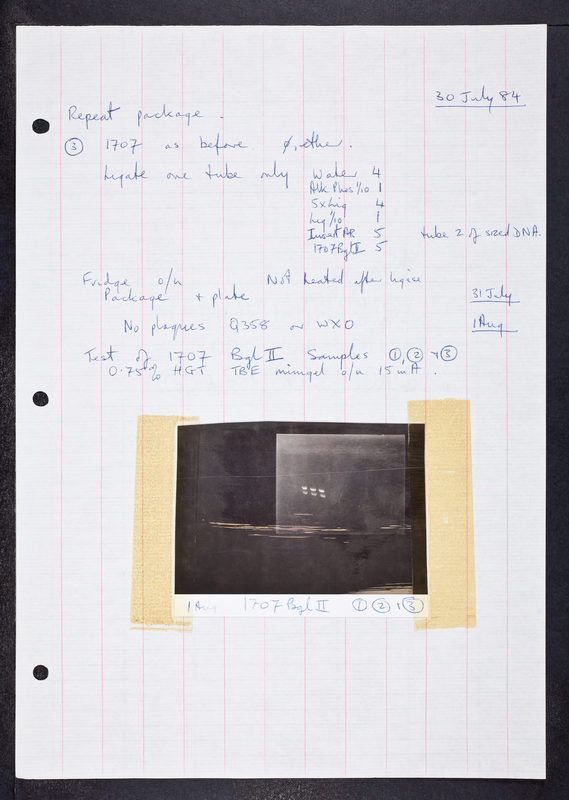 30 July 84
Repeat package.
③ 1707 as before. ∅, ether.
Ligate one tube only Water 4
Alk Phos 1/10 1
5xLig 4
Lig 1/10 1
Insert AR 5 tube 2 of sized DNA.
1707 Bgl II 5
Fridge o/n Not heated after ligise
Package + plate 31 July
No plaques Q358 or WXO 1 Aug
Test of 1707 Bgl II Samples ①, ② + ③
0.75% HGT TBE minigel o/n 15mA.
1 Aug 1707 Bgl II ① ② , ③